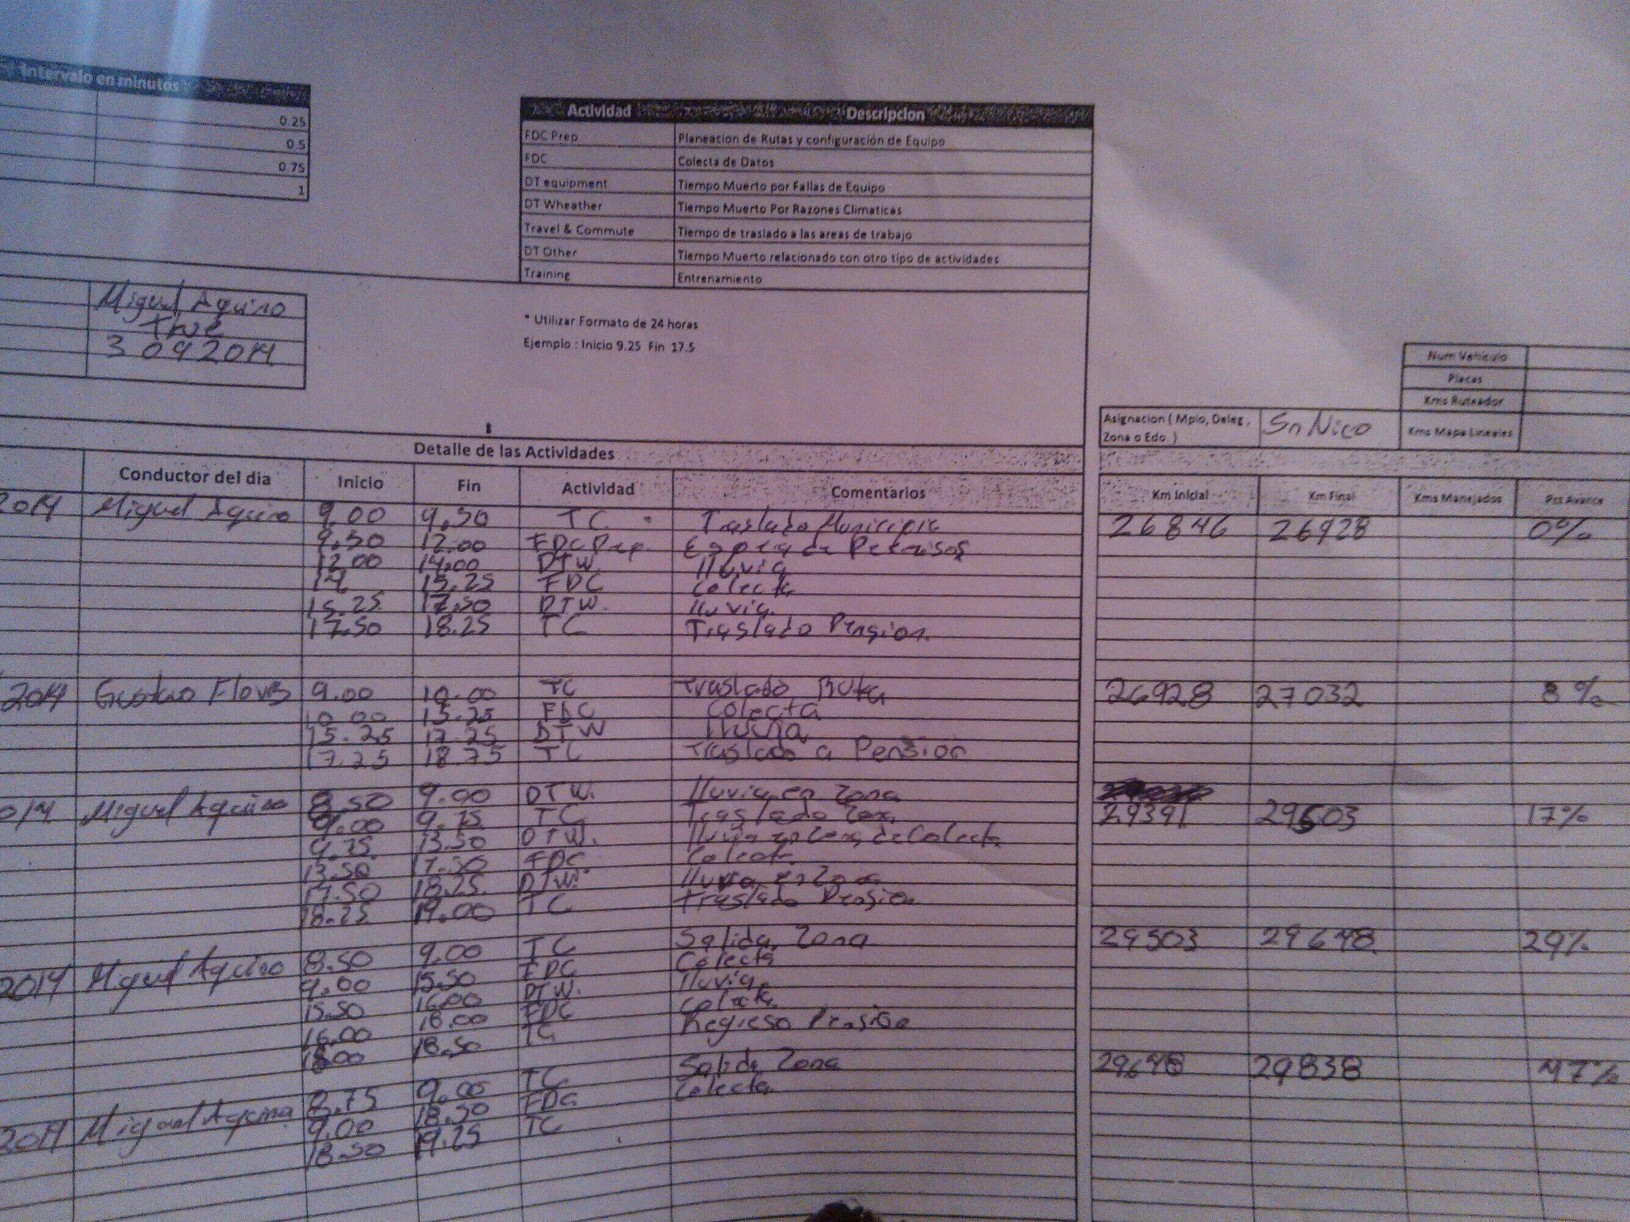 Intervalo en minutos
0.25
0.5
0.75
1
Actividad Descripcion
FDC Prep Planeacion de Rutas y configuración de Equipo
FDC Colecta de Datos
DT equipment Tiempo Muerto por Fallas de Equipo
DT Wheather Tiempo Muerto Por Razones Climaticas
Travel & Commute Tiempo de traslado a las areas de trabajo
DT Other Tiempo Muerto relacionado con otro tipo de actividades
Training Entrenamiento
Miguel Aquino
3 09 2014
* Utilizar Formato de 24 horas
Ejemplo : Inicio 9.25 Fin 17.5
Num Vehículo
Placas
Kms Ruteador
Kms Mapa Lineales
Asignacion ( Mpio, Deleg,
Zona o Edo ) Sn Nico
Detalle de las Actividades
Conductor del dia Inicio Fin Actividad Comentarios Km Inicial Km Final Kms Manejados Pct Avance
2014 Miguel Aquino 9.00 9.50 TC Traslado Municipio 26846 26928 0%
9.50 12.00 FDC Prep. de Permisos
12.00 14.00 DTW. lluvia
14 15.25 FDC Colecta
15.25 17.50 DTW. lluvia
17.50 18.25 TC Traslado Pension
2014 Gustavo Flores 9.00 10.00 TC Traslado Ruta 26928 27032 8%
10.00 15.25 FDC Colecta
15.25 17.25 DTW lluvia
17.25 18.75 TC Traslado a Pension
014 Miguel Aquino 8.50 9.00 DTW. lluvia en Zona
9.00 9.75 TC Traslado Zona 29391 29503 17%
9.75 13.50 DTW. lluvia en Zona de Colecta
13.50 17.50 FDC Colecta
17.50 18.25 DTW. lluvia en Zona
18.25 19.00 TC Traslado Pension
2014 Miguel Aquino 8.50 9.00 TC Salida Zona 29503 29648 29%
9.00 15.50 FDC Colecta
15.50 16.00 DTW. lluvia
16.00 18.00 FDC Colecta
18.00 18.50 TC Regreso Pension
2014 Miguel Aquino 8.75 9.00 TC Salida Zona 29648 29838 47%
9.00 18.50 FDC Colecta
18.50 19.25 TC